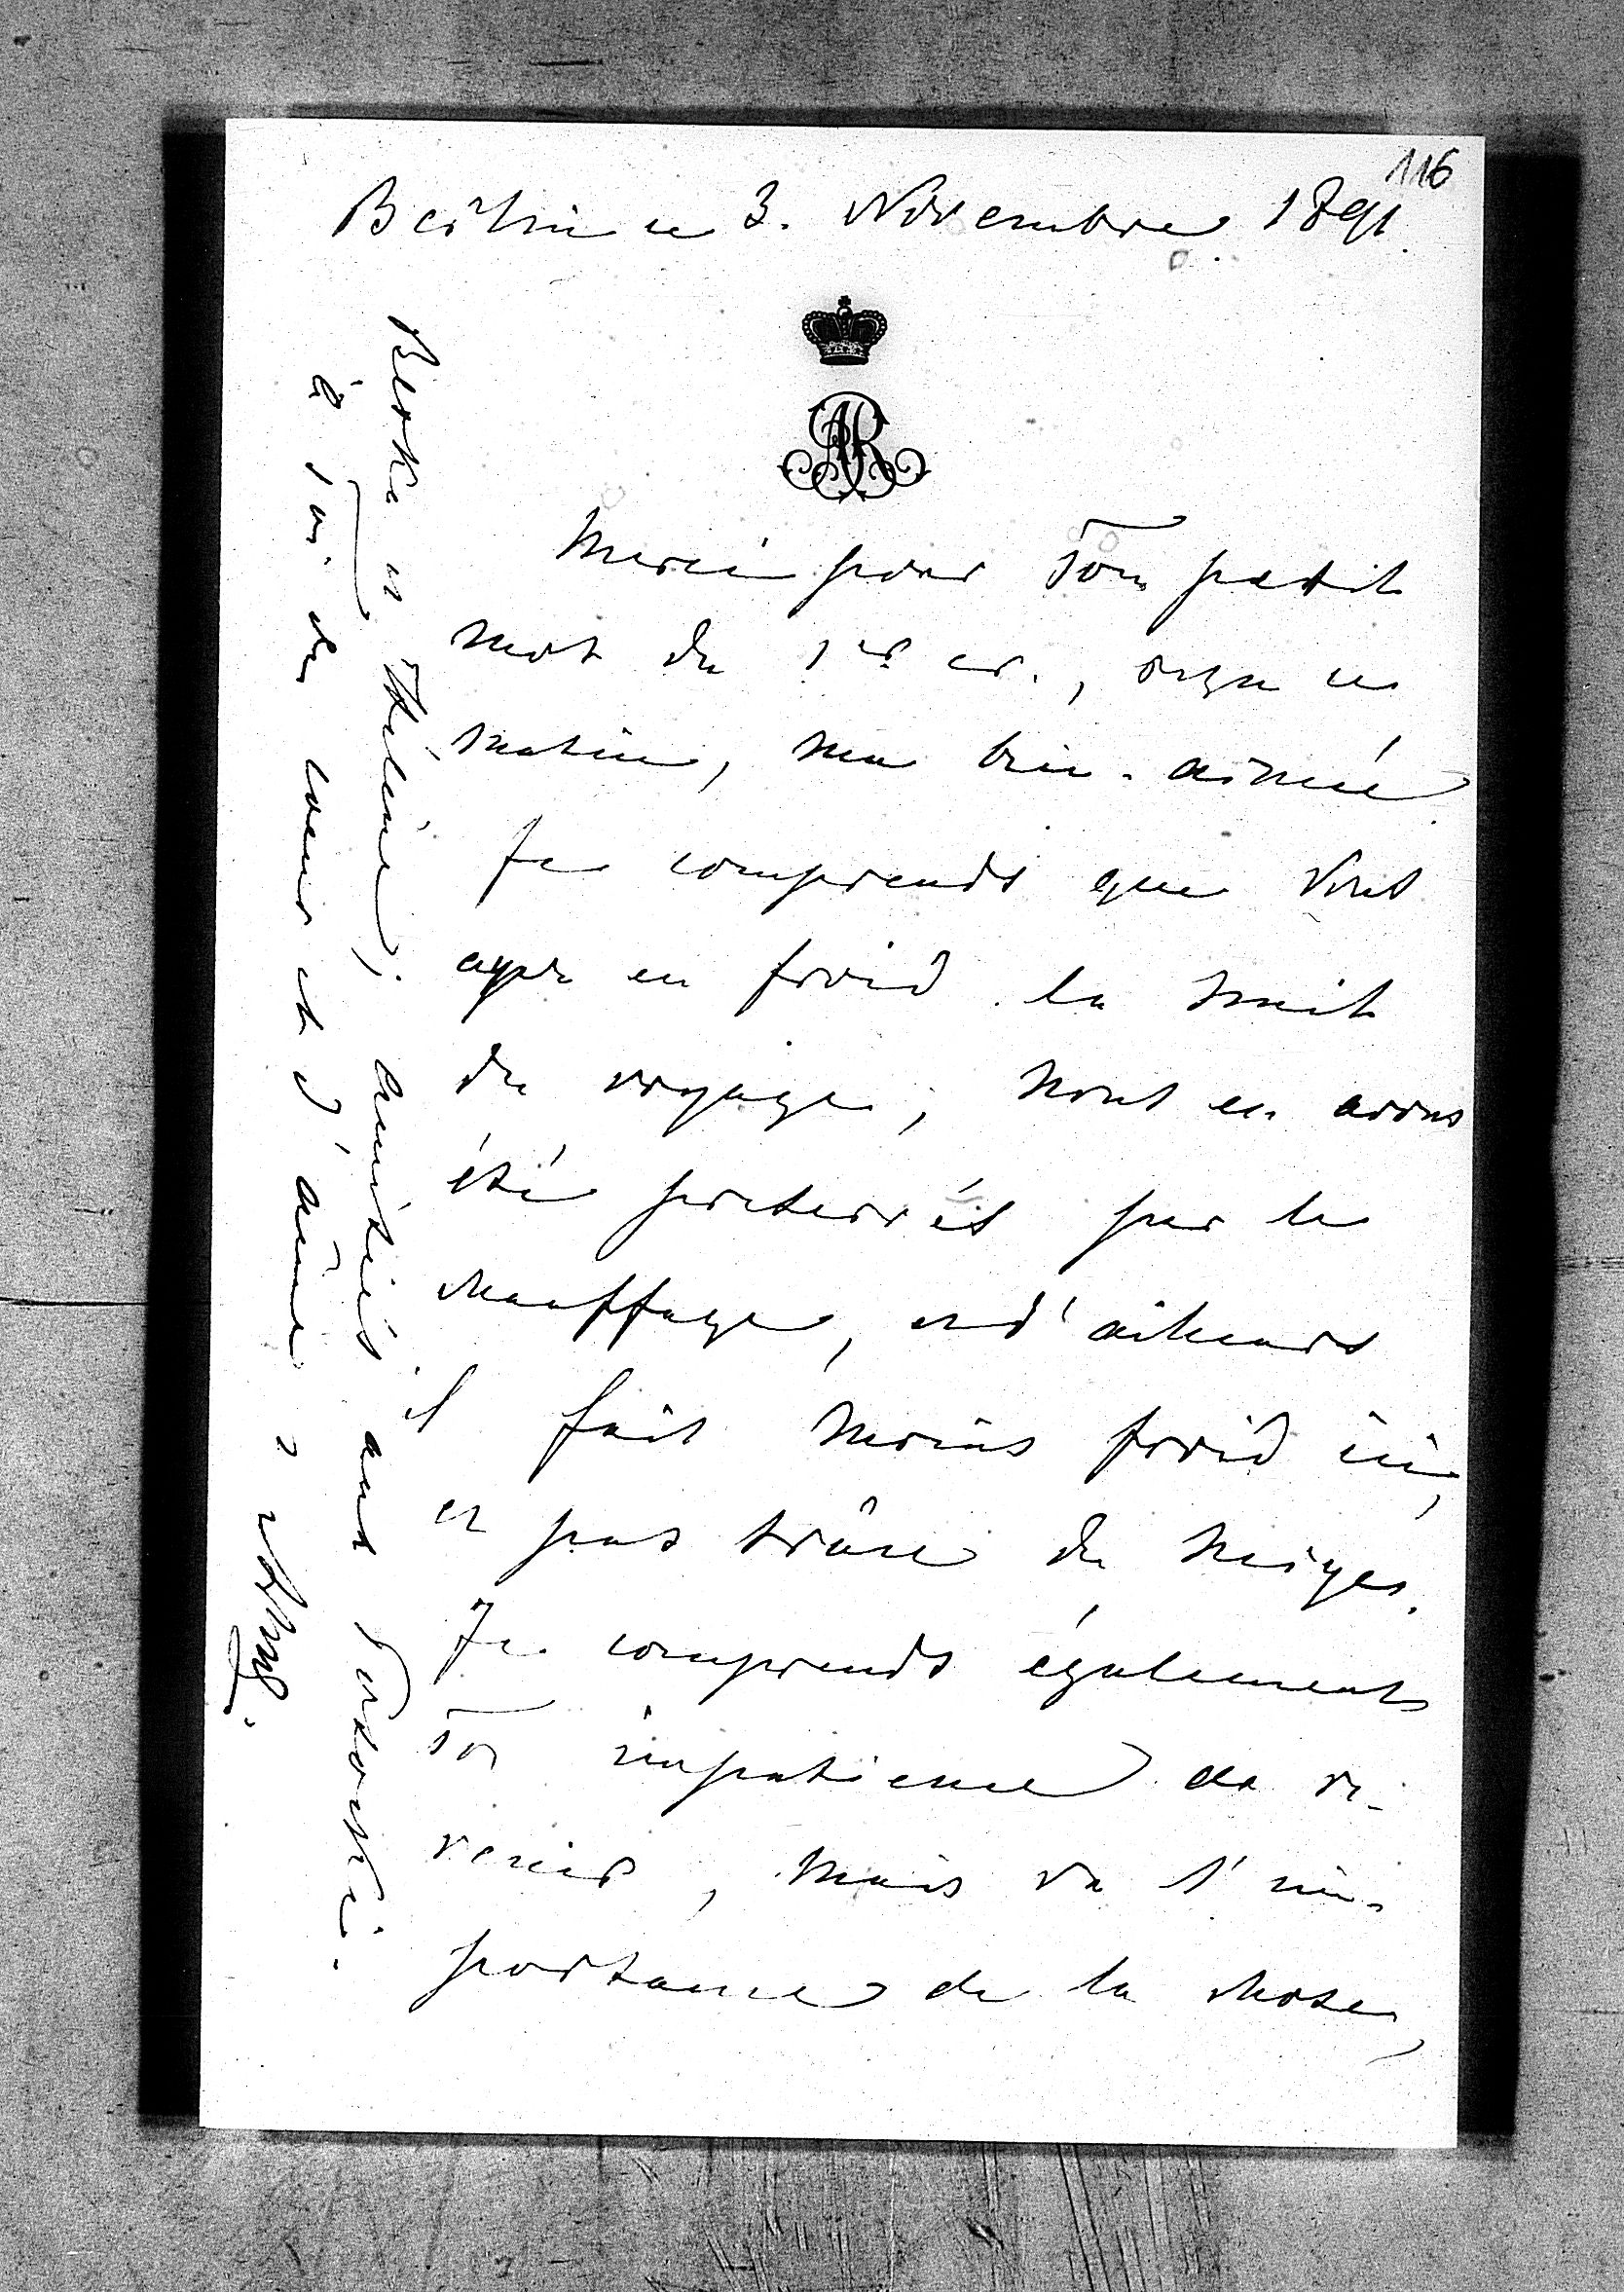 116
Berlin ce 3. Novembre 1891.
AR
Merci pour Ton petit
mot du 1er cr., reçu ce
matin, ma bien-aimée.
Je comprends que Vous
ayez eu froid la nuit
du voyage; nous en avons
été preservés par le
chauffage, et d'ailleurs
il fait moins froid ici,
et pas trâce de neiges.
Je comprends également
Ton impatience de re-
venir, mais vu l'im-
portance de la chose,
et Hélène; amitiés aux
à Toi de coeur et d'âme